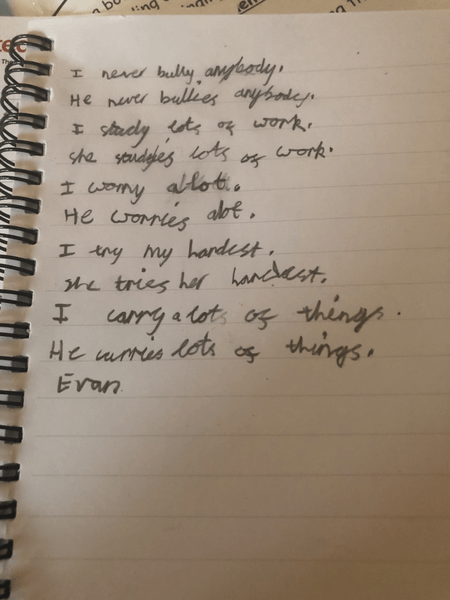 I never bully anybody.
He never bullies anybody.
I study lots of work.
she studies lots of work.
I worry alot.
He worries alot.
I try my hardest.
she tries her hardest.
I carry a lots of things.
He carries lots of things.
Evan